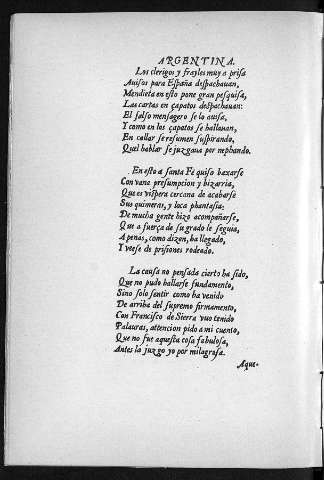 ARGENTINA.
Los clerigos y frayles muy a prisa
Auisos para España despachauan,
Mendieta en esto pone gran pesquisa,
Las cartas en çapatos despachauan:
El falso mensagero se lo auisa,
Y como en los çapatos se hallauan,
En callar se resumen suspirando,
Quel hablar se juzgaua por nephando.
En esto a santa Fè quiso baxarse
Con vana presumpcion y bizarria,
Que es vispera cercana de acabarse
Sus quimeras, y loca phantasia:
De mucha gente hizo acompañarse,
Que a fuerça de su grado le seguia,
Apenas, como dizen, ha llegado,
Y veese de prisiones rodeado.
La causa no pensada cierto ha sido,
Que no pudo hallarse fundamento,
Sino solo sentir como ha venido
De arriba del supremo firmamento,
Con Francisco de Sierra vuo tenido
Palauras, attencion pido a mi cuento,
Que no fue aquesta cosa fabulosa,
Antes la juzgo yo por milagrosa.
Aque-